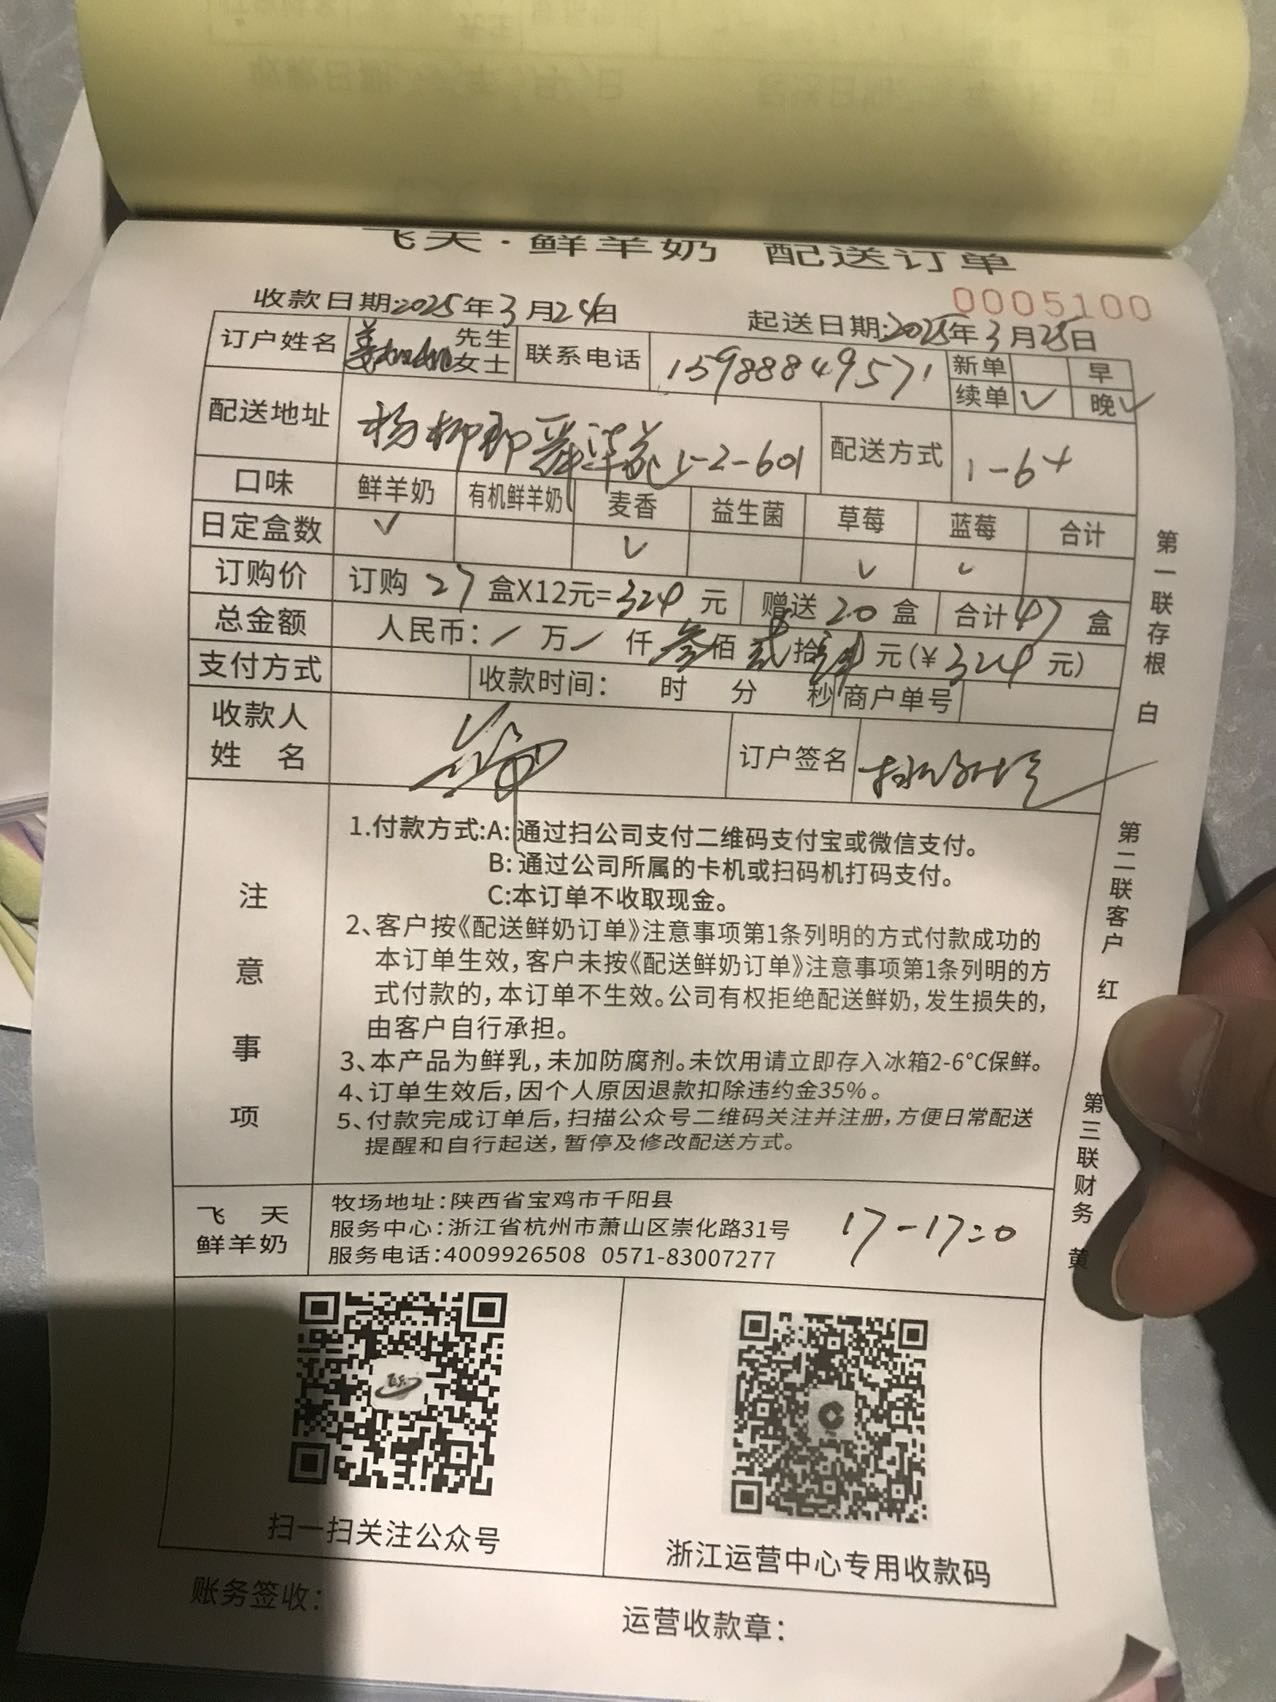 飞天·鲜羊奶 配送订单
0005100
收款日期:2025年3月24日 起送日期:2025年3月25日
订户姓名 姜 先生 女士 联系电话 15988849571 新单 早
续单 ✓ 晚 ✓
配送地址 杨柳郡 1-2-601 配送方式 1-6
口味 鲜羊奶 有机鲜羊奶 麦香 益生菌 草莓 蓝莓 合计
日定盒数 ✓ ✓ ✓ ✓
订购价 订购 27 盒X12元=324 元 赠送 20 盒 合计 47 盒
总金额 人民币: / 万 / 仟 叁 佰 贰 拾 肆 元(¥ 324 元)
支付方式 收款时间: 时 分 秒 商户单号
收款人姓 名 订户签名
注意事项
1.付款方式:A:通过扫公司支付二维码支付宝或微信支付。
B:通过公司所属的卡机或扫码机打码支付。
C:本订单不收取现金。
2、客户按《配送鲜奶订单》注意事项第1条列明的方式付款成功的
本订单生效,客户未按《配送鲜奶订单》注意事项第1条列明的方
式付款的,本订单不生效。公司有权拒绝配送鲜奶,发生损失的,
由客户自行承担。
3、本产品为鲜乳,未加防腐剂。未饮用请立即存入冰箱2-6°C保鲜。
4、订单生效后,因个人原因退款扣除违约金35%。
5、付款完成订单后,扫描公众号二维码关注并注册,方便日常配送
提醒和自行起送,暂停及修改配送方式。
飞 天
鲜羊奶
牧场地址:陕西省宝鸡市千阳县
服务中心:浙江省杭州市萧山区崇化路31号
服务电话:4009926508 0571-83007277
17-17:0
扫一扫关注公众号
浙江运营中心专用收款码
账务签收:
运营收款章:
第一联存根 白
第二联客户 红
第三联财务 黄